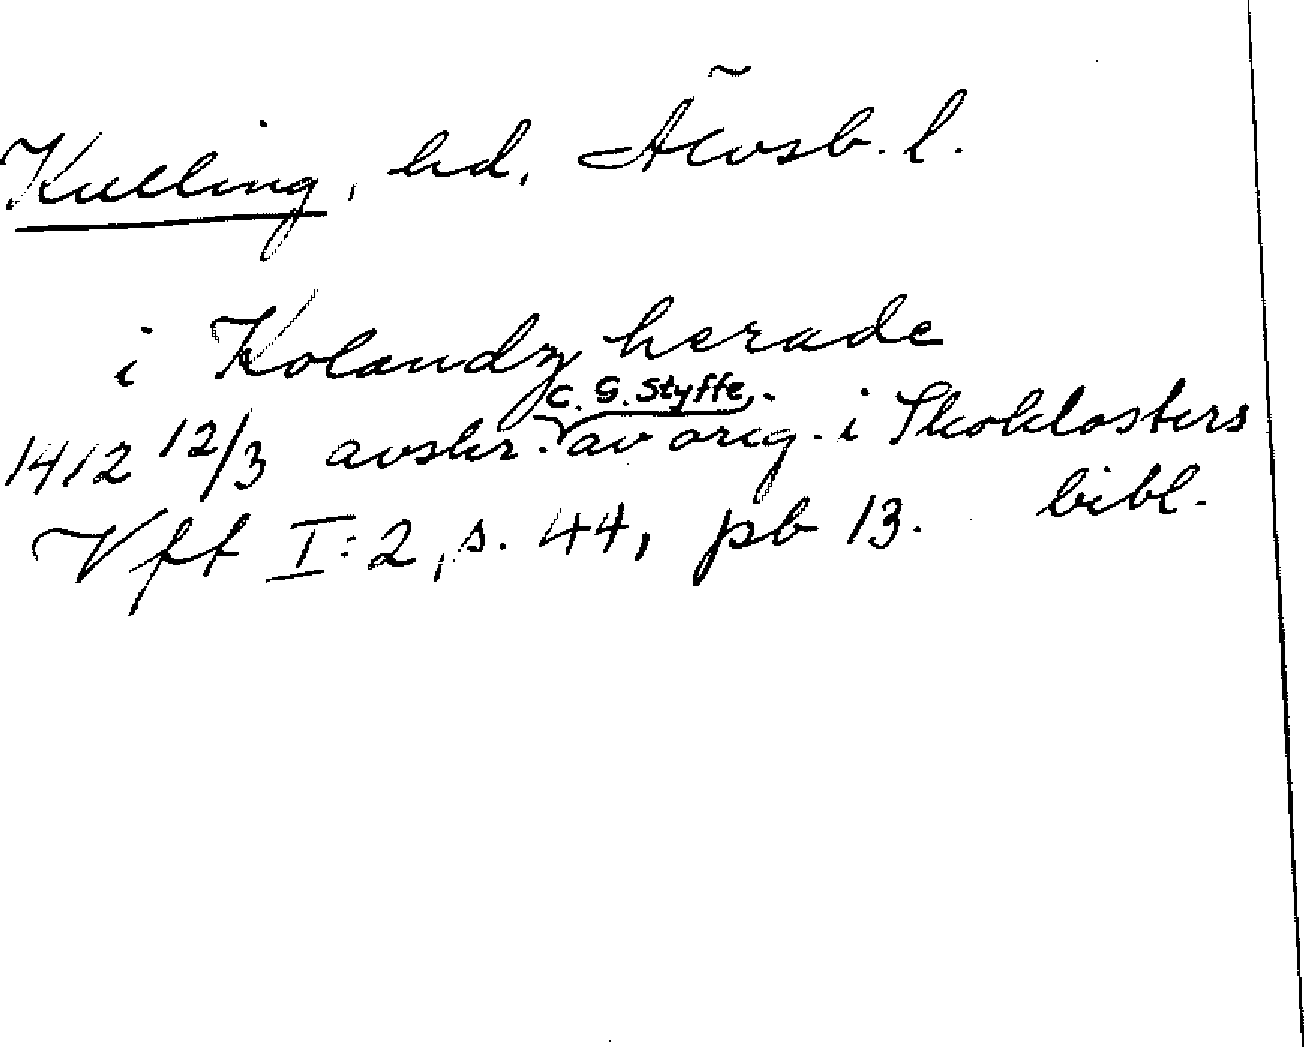 Kulling, hd, Älvsb. l.
i Kolandz herade
C. G. Styffe,
1412 12/3 avskr. av orig. i Skoklosters
bibl.
Vft I:2, s. 44, pb 13.